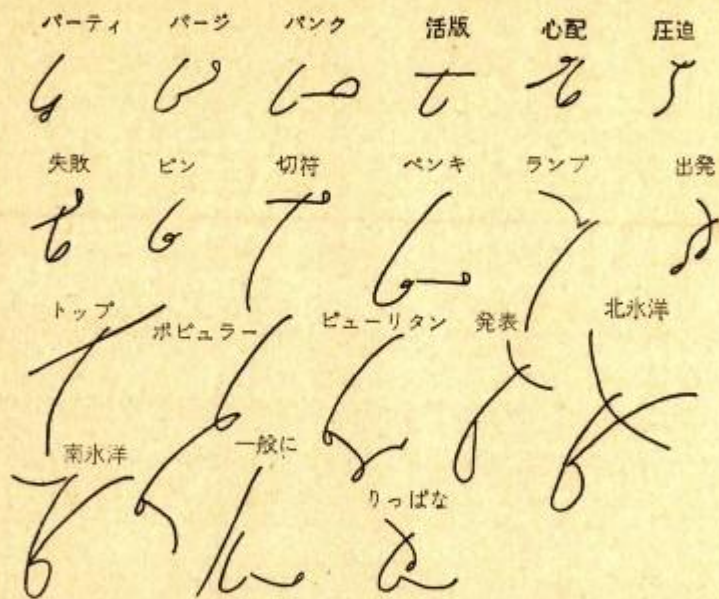 パーティ パージ パンク 活版 心配 圧迫
失敗 ピン 切符 ペンキ ランプ 出発
トップ ポピュラー ピューリタン 発表 北氷洋
南氷洋 一般に
りっぱな